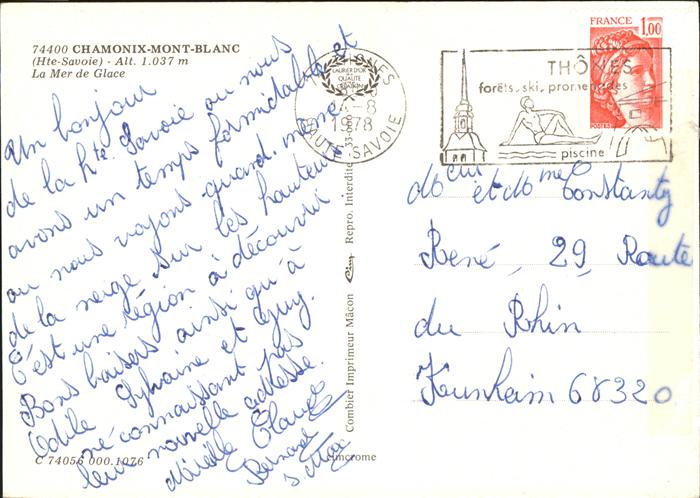 74400 CHAMONIX-MONT-BLANC
(Hte-Savoie) - Alt. 1.037 m
La Mer de Glace
Un bonjour
de la hte Savoie où nous
avons un temps formidable et
où nous voyons quand même
de la neige sur les hauteurs
C'est une région à découvrir
Bons baisers ainsi qu'à
Odile Sylvaine et Guy.
ne connaissant pas
leur nouvelle adresse.
Mireille Claude
Bernard
C 74056 000.1076
Combier Imprimeur Mâcon
Repro. Interdite
LAURIER D'OR
QUALITE
1978
HAUTE-SAVOIE
THÔNES
forêts, ski, promenades
piscine
FRANCE 1,00
POSTES
Mr et Mme Constanty
René, 29 Route
du Rhin
Kunheim 68320